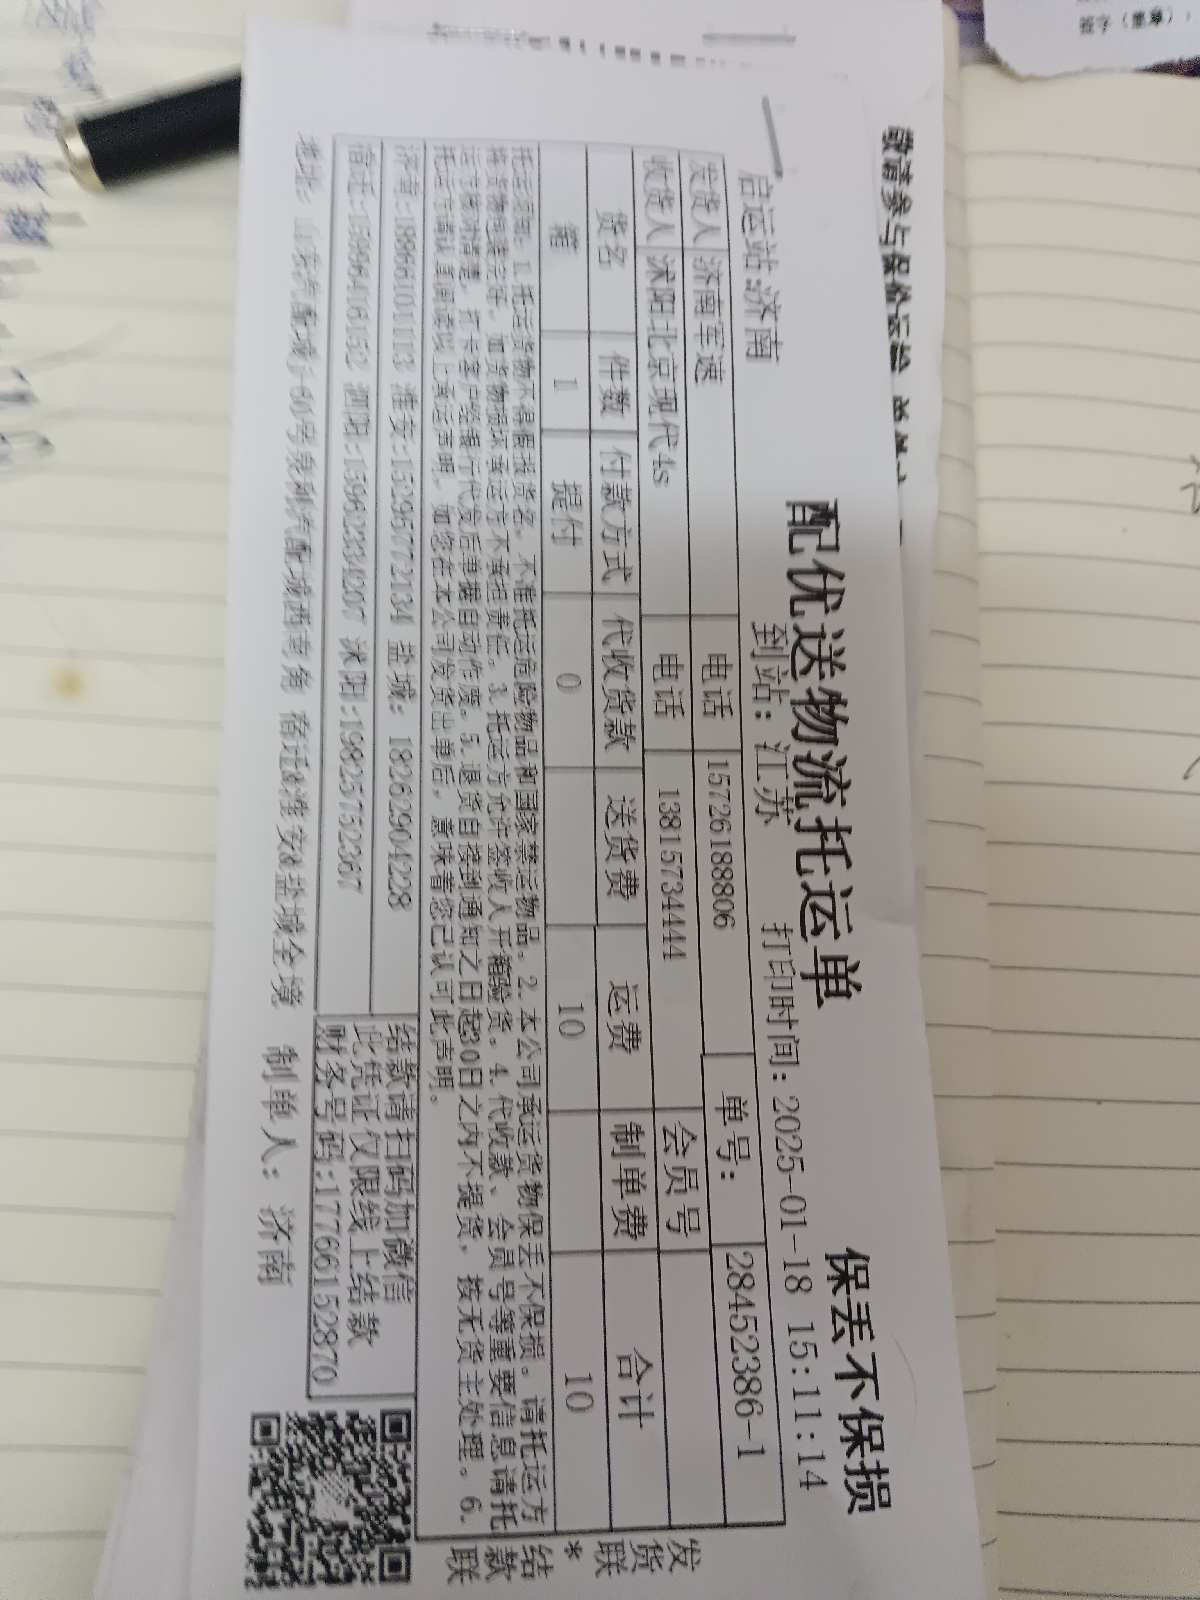 配优送物流托运单
保丢不保损
启运站:济南
到站: 江苏
打印时间: 2025-01-18 15:11:14
发货人 济南军速 电话 15726188806 单号: 28452386-1
收货人 沭阳北京现代4s 电话 13815734444 会员号
货名 件数 付款方式 代收货款 送货费 运费 制单费 合计
箱 1 提付 0 10 10
托运须知: 1.托运货物不得假报货名。不准托运危险物品和国家禁运物品。2.本公司承运货物保丢不保损。请托运方
将货物包装完好。如货物损坏承运方不承担责任。3.托运方允许签收人开箱验货。4.代收款、会员号等重要信息请托
运方核对清楚。打卡客户经银行代发后单据自动作废。5.退货自接到通知之日起30日之内不提货，按无货主处理。6.
托运方请认真阅读以上承运声明。如您在本公司发货出单后，意味着您已认可此声明。
济南:18866101113 淮安:15295772134 盐城: 18262904228
宿迁:15996416152 泗阳:15962334207 沭阳:19825752367
结款请扫码加微信
此凭证仅限线上结款
财务号码:17766152870
地址: 山东汽配城5-60号奥利汽配城西南角 宿迁&淮安&盐城全境 制单人: 济南
发货联*结款联
敬请参与保价运输